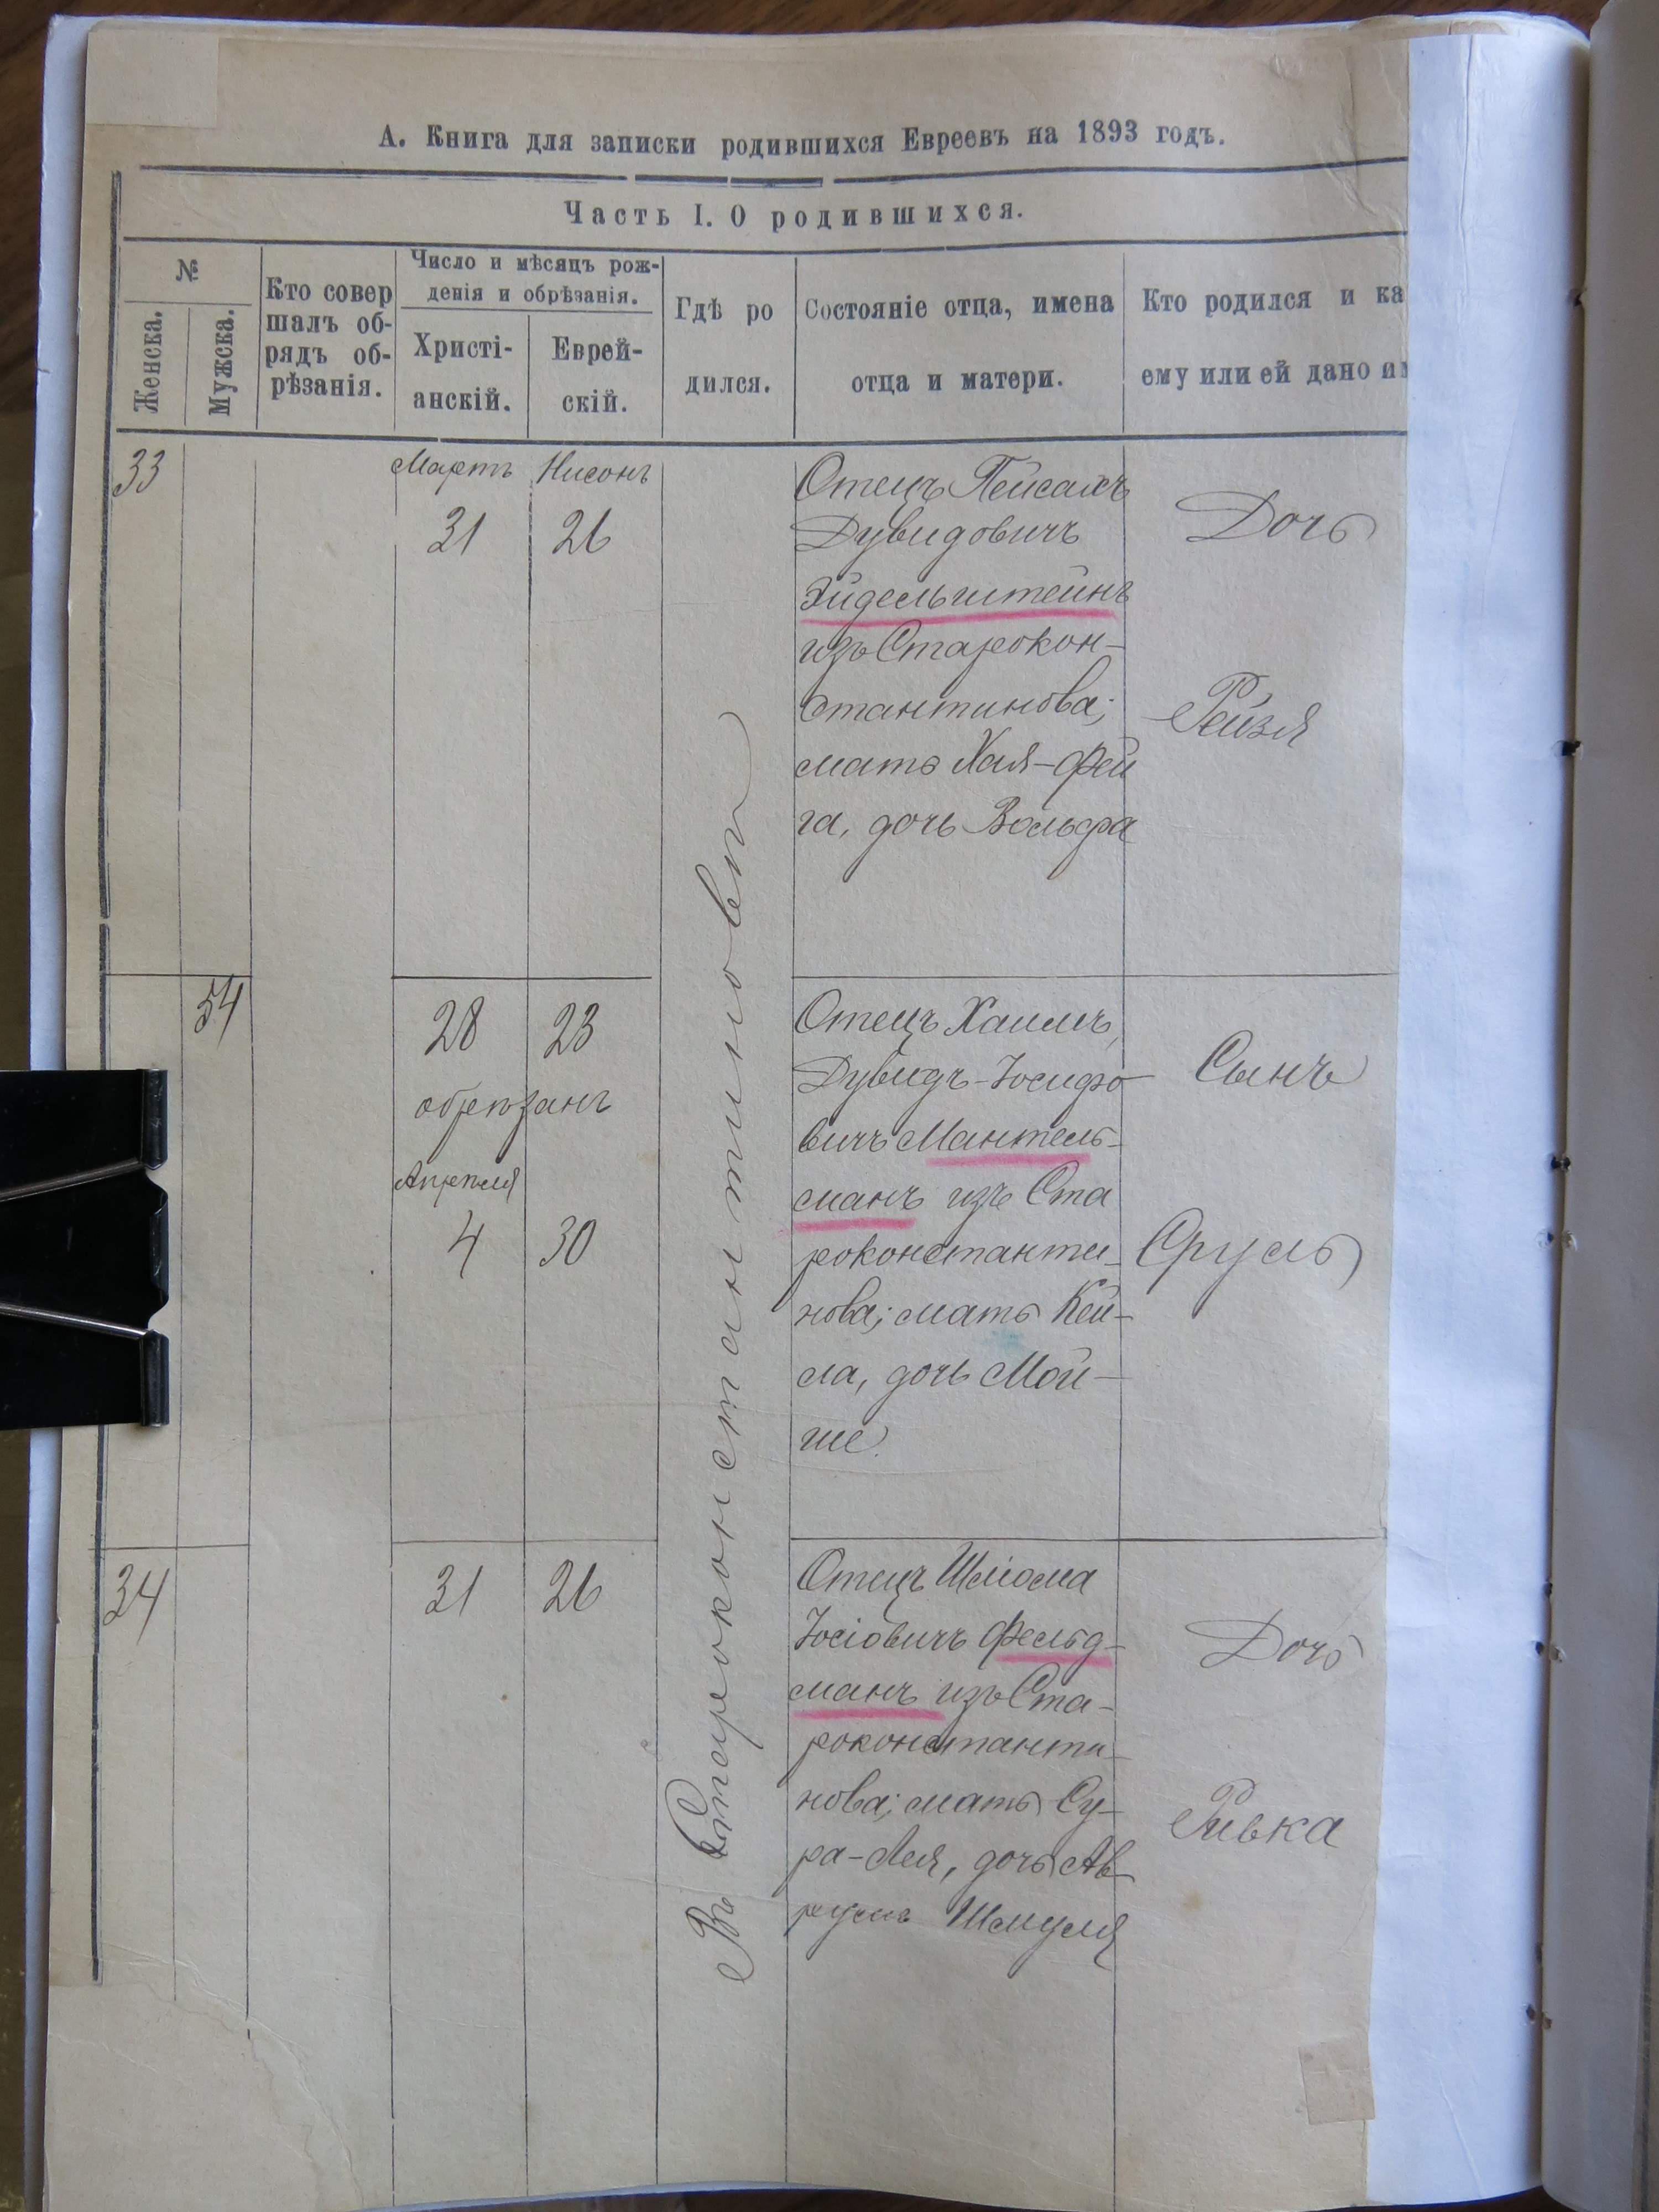 А. Книга для записки родившихся Евреевъ на 1893 годъ.
Часть I. О родившихся.
№
Женска.
Мужска.
Кто совер
шалъ об-
рядъ об-
рѣзанія.
Число и мѣсяцъ рож-
денія и обрѣзанія.
Христі-
анскій.
Еврей-
скій.
Гдѣ ро
дился.
Состояніе отца, имена
отца и матери.
Кто родился и ка
ему или ей дано им
33
Мартъ Нисонъ
31 26
Отецъ Пейсахъ
Дувидовичъ
Эйдельштейнъ
изъ Старокон-
стантинова;
мать Хая-Фей
га, дочь Вольфа
Дочь
Рейзя
Въ Старокон стан тиновѣ
54
28 23
обрѣзанъ
Апрѣля
4 30
Отецъ Хаимъ,
Дувидъ-Іосифо
вичъ Мантель-
манъ изъ Ста
роконстанти-
нова; мать Кей-
ла, дочь Мой-
ше.
Сынъ
Сруль
34
31 26
Отецъ Шліома
Іосіовичъ Фельд-
манъ изъ Ста-
роконстанти-
нова; мать Су-
ра-Лея, дочь Ав-
румъ Шмуля
Дочь
Ривка